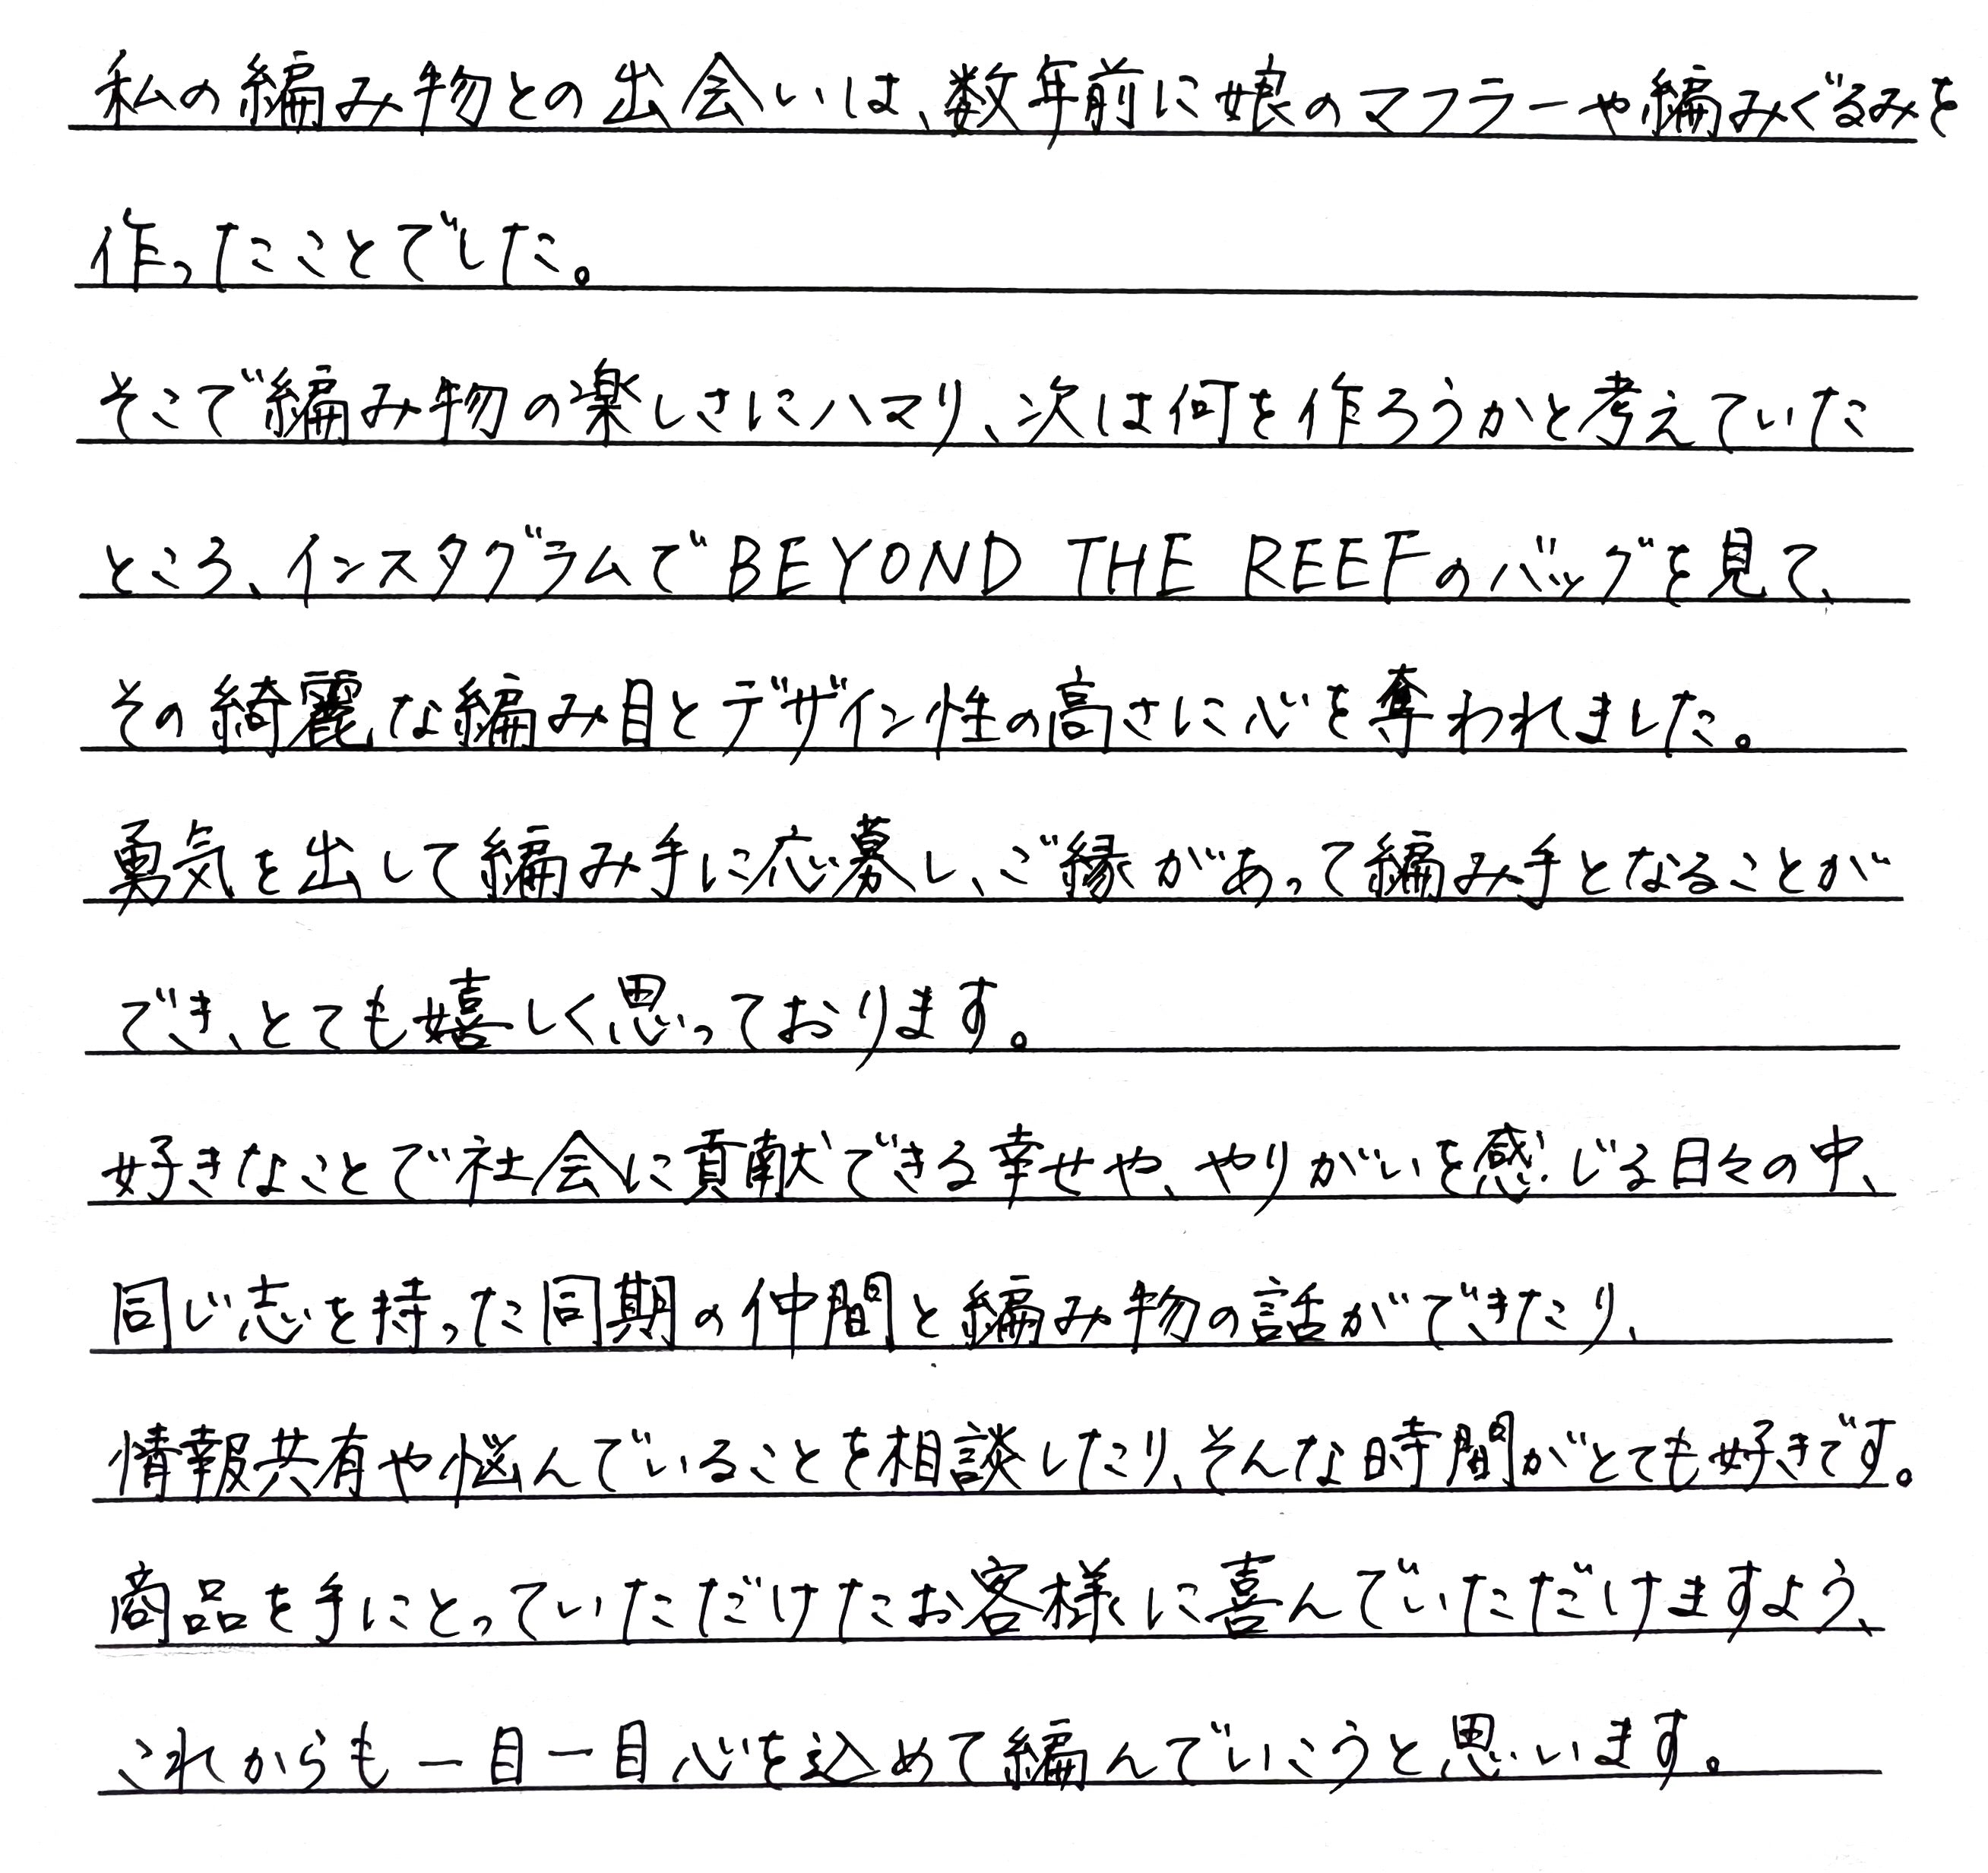 私の編み物との出会いは、数年前に娘のマフラーや編みぐるみを
作ったことでした。
そこで編み物の楽しさにハマり、次は何を作ろうかと考えていた
ところ、インスタグラムでBEYOND THE REEFのバッグを見て、
その綺麗な編み目とデザイン性の高さに心を奪われました。
勇気を出して編み手に応募し、ご縁があって編み手となることが
でき、とても嬉しく思っております。
好きなことで社会に貢献できる幸せや、やりがいを感じる日々の中、
同じ志を持った同期の仲間と編み物の話ができたり、
情報共有や悩んでいることを相談したり、そんな時間がとても好きです。
商品を手にとっていただけたお客様に喜んでいただけますよう、
これからも一目一目心を込めて編んでいこうと思います。